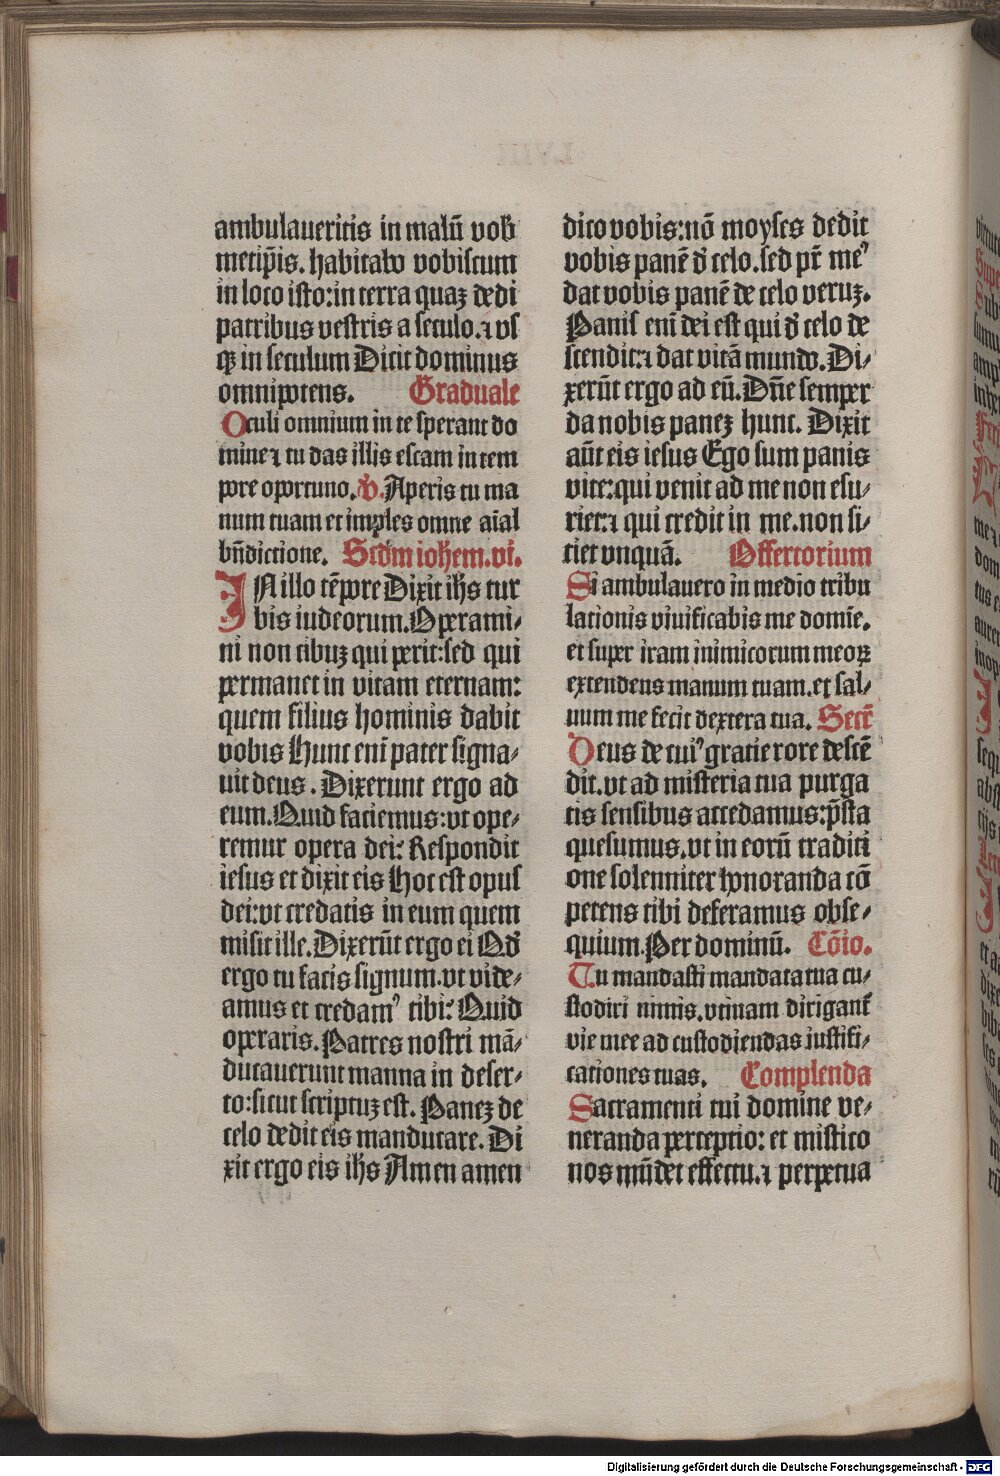 ambulaueritis in malū vob
metip̄is. habitabo vobiscum
in loco isto: in terra quaꝫ dedi
patribus vestris a seculo. ⁊ vs
qꝫ in seculum Dicit dominus
omnipotens. Graduale
Oculi omnium in te sperant do
mine ⁊ tu das illis escam in tem
pore oportuno. ℣. Aperis tu ma
num tuam et imples omne aīal
bn̄dictione. Scd̄m iohem. vi.
IN illo tēpore Dixit ihs tur
bis iudeorum. Operami⸗
ni non cibuꝫ qui perit: sed qui
permanet in vitam eternam:
quem filius hominis dabit
vobis Hunc enī pater signa⸗
uit deus. Dixerunt ergo ad
eum. Quid faciemus: vt ope⸗
remur opera dei? Respondit
iesus et dixit eis Hoc est opus
dei: vt credatis in eum quem
misit ille. Dixerūt ergo ei Qd̄
ergo tu facis signum. vt vide⸗
amus et credamꝰ tibi? Quid
operaris. Patres nostri mā⸗
ducauerunt manna in deser⸗
to: sicut scriptuꝫ est. Paneꝫ de
celo dedit eis manducare. Di
xit ergo eis ihs Amen amen
dico vobis: nō moyses dedit
vobis panē d̄ celo. sed pr̄ meꝰ
dat vobis panē de celo veruꝫ.
Panis enī dei est qui d̄ celo de
scendit: ⁊ dat vitā mundo. Di⸗
xerūt ergo ad eū. Dn̄e semper
da nobis paneꝫ hunc. Dixit
aūt eis iesus Ego sum panis
vite: qui venit ad me non esu⸗
riet: ⁊ qui credit in me. non si⸗
tiet vnquā. Offertorium
Si ambulauero in medio tribu
lationis viuificabis me domīe.
et super iram inimicorum meoꝝ
extendens manum tuam. et sal⸗
uum me fecit dextera tua. Secr̄
Deus de cuiꝰ gratie rore descē
dit. vt ad misteria tua purga
tis sensibus accedamus: p̄sta
quesumus. vt in eorū traditi
one solenniter honoranda cō
petens tibi deferamus obse⸗
quium. Per dominū. Cōio.
Tu mandasti mandata tua cu⸗
stodiri nimis. vtinam dirigant̄
vie mee ad custodiendas iustifi⸗
cationes tuas. Complenda
Sacramenti tui domine ve⸗
neranda perceptio: et mistico
nos mūdet effectu. ⁊ perpetua
Digitalisierung gefördert durch die Deutsche Forschungsgemeinschaft - DFG